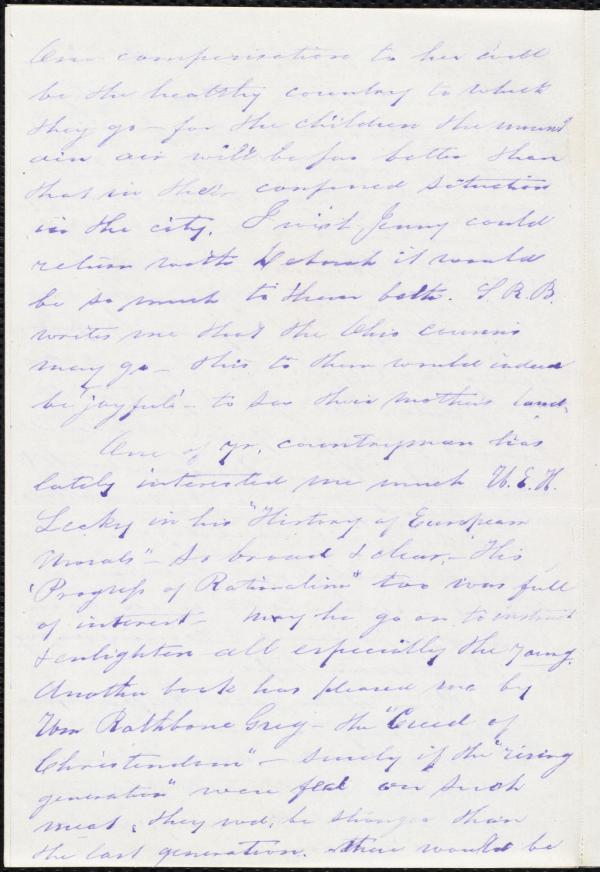 One compensation to her will
be the healthy country to which
they go - for the children the mount
ain air will be far better than
that in their confined situation
in the city. I wish Jenny could
return with Deborah it would
be so much to them both. S.R.B.
writes me that the Ohio cousins
may go - this to them would indeed
be joyful - to see their mother's land.
One of yr. countryman has
lately interested me much W.E.H.
Lecky in his "History of European
Morals" - so broad & clear, - His
"Progress of Rationalism" too was full
of interest - May he go on to instruct
& enlighten all especially the young.
Another book has pleased me by
Wm Rathbone Greg - the "Creed of
Christendom" - surely if the "rising
generation" were fed on such
meat, they wd. be stronger than
the last generation. there would be